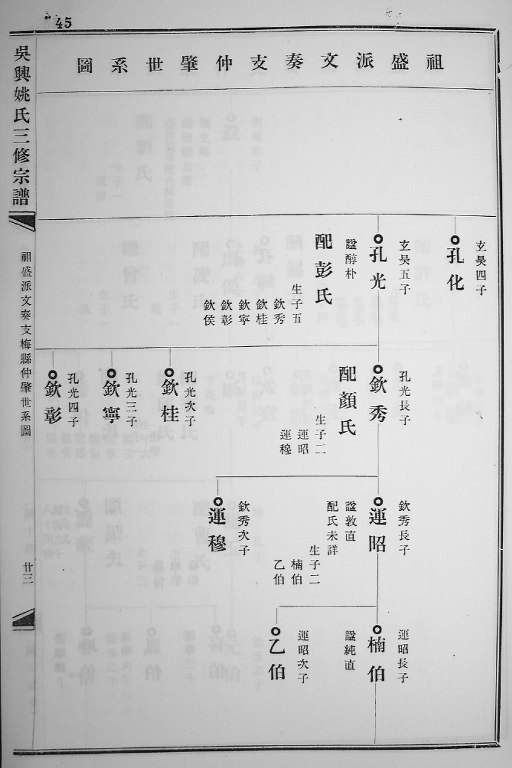 45
祖盛派文奏支仲肇世系圖
吳興姚氏三修宗譜
祖盛派文奏支梅縣仲肇世系圖
廿三
玄吳四子
孔化
玄吳五子
孔光
諡醇朴
配彭氏
生子五
欽秀
欽桂
欽寧
欽彰
欽侯
孔光長子
欽秀
配顏氏
生子二
運昭
運穆
孔光次子
欽桂
孔光三子
欽寧
孔光四子
欽彰
欽秀長子
運昭
諡敦直
配氏未詳
生子二
楠伯
乙伯
欽秀次子
運穆
運昭長子
楠伯
諡純直
運昭次子
乙伯